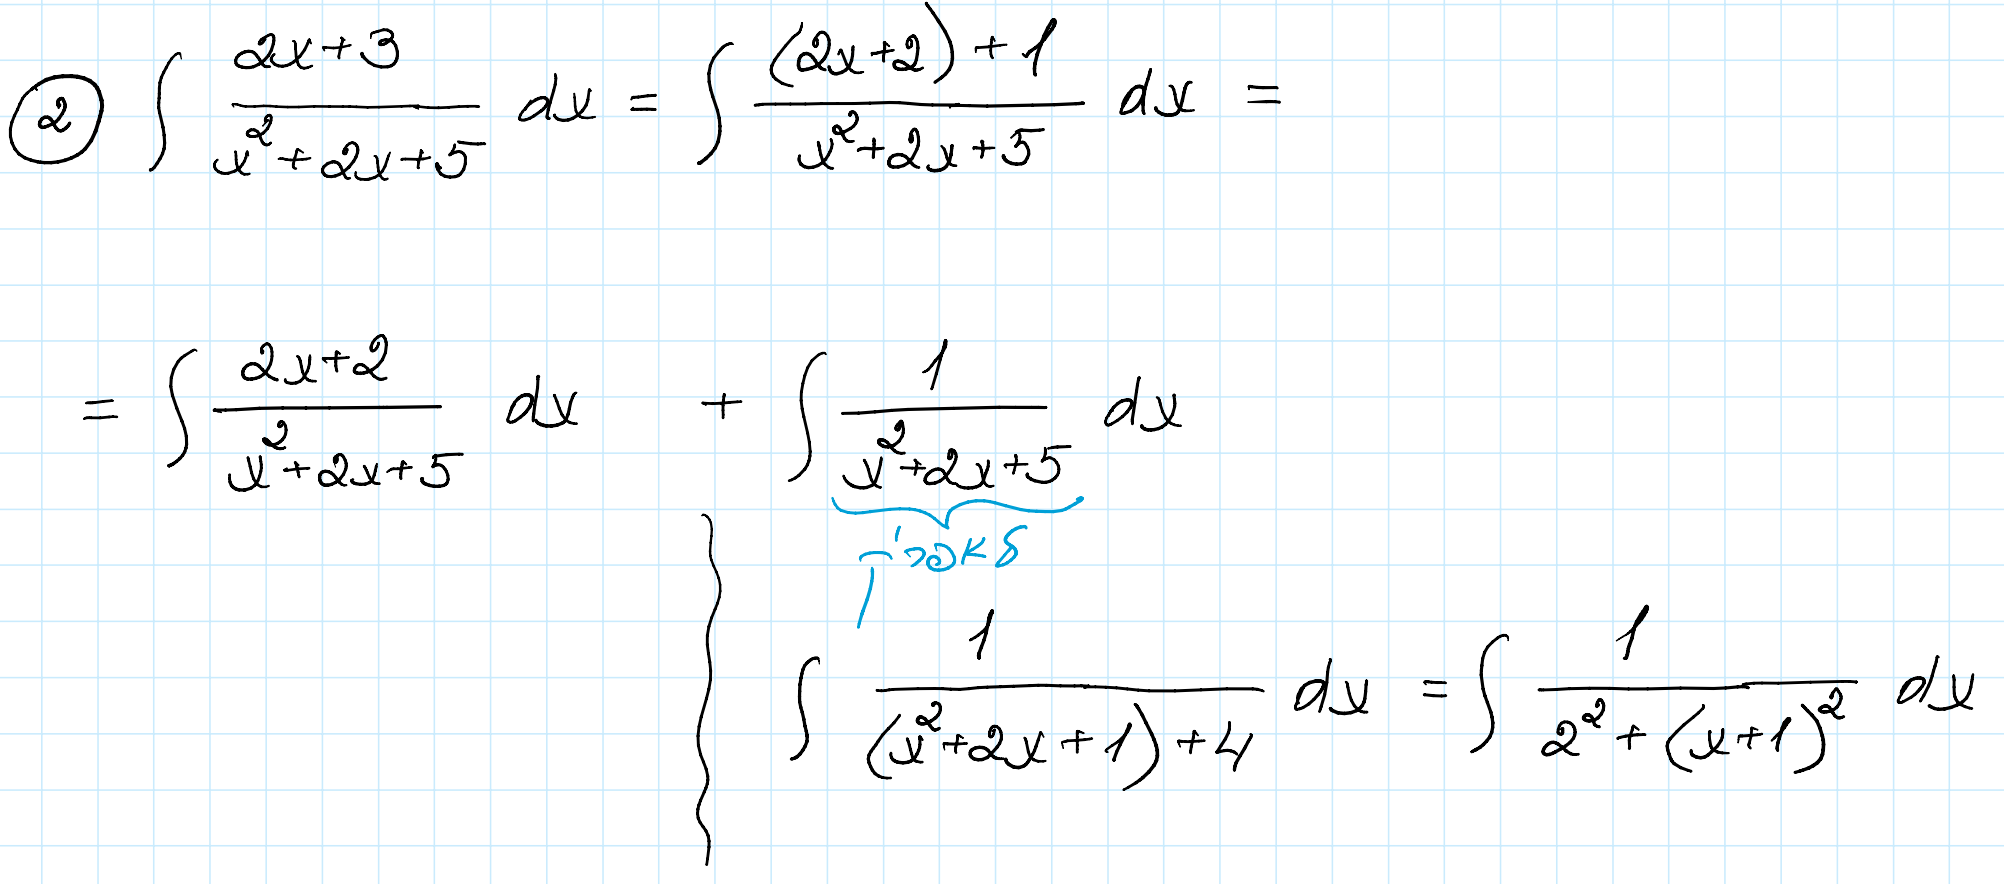 ② ∫ (2x+3)/(x²+2x+5) dx = ∫ ((2x+2)+1)/(x²+2x+5) dx =
= ∫ (2x+2)/(x²+2x+5) dx + ∫ 1/(x²+2x+5) dx
∫ 1/((x²+2x+1)+4) dx = ∫ 1/(2²+(x+1)²) dx